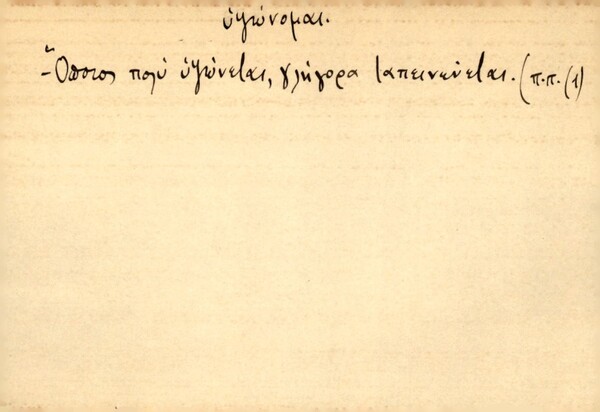 ὑψώνομαι.
-Ὅποιος πολύ ὑψώνεται, γλήγορα ταπεινεύεται. (π.π. (1)